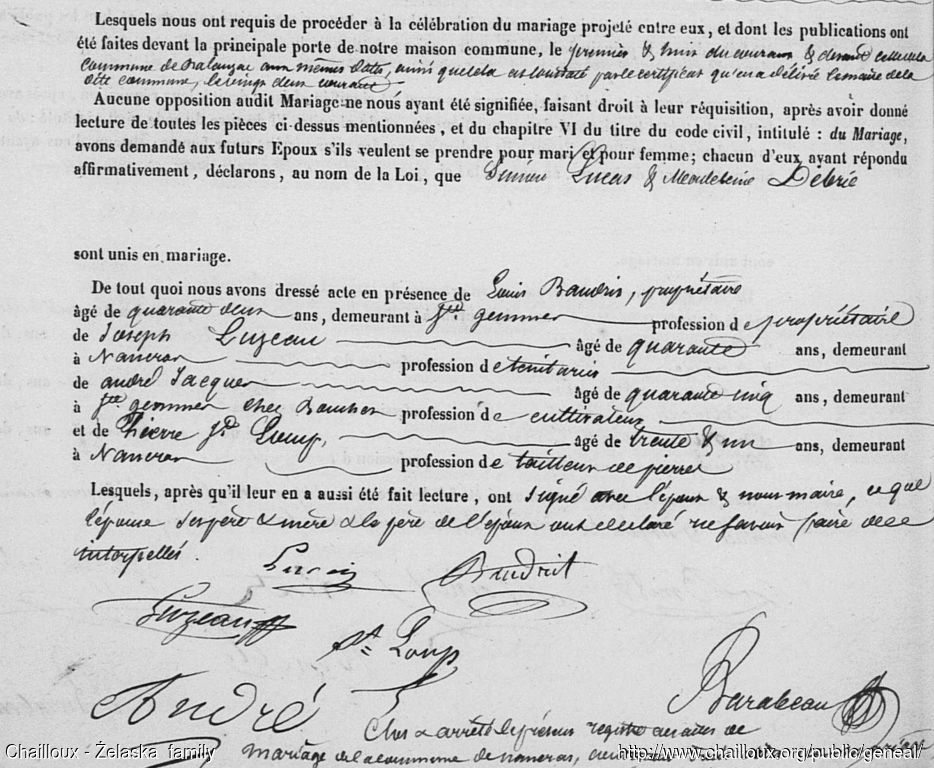 Lesquels nous ont requis de procéder à la célébration du mariage projeté entre eux, et dont les publications ont
été faites devant la principale porte de notre maison commune, le premier & huit du courant & devant celle de la
commune de Balanzac aux mêmes dates, ainsi que cela est constaté par le certificat qu'en a délivré le maire de la
dite commune, le vingt deux courant
Aucune opposition audit Mariage ne nous ayant été signifiée, faisant droit à leur réquisition, après avoir donné
lecture de toutes les pièces ci-dessus mentionnées, et du chapitre VI du titre du code civil, intitulé : du Mariage,
avons demandé aux futurs Epoux s'ils veulent se prendre pour mari et pour femme; chacun d'eux ayant répondu
affirmativement, déclarons, au nom de la Loi, que Lucas & Madeleine Débrie
sont unis en mariage.
De tout quoi nous avons dressé acte en présence de Louis Baudrit, propriétaire
âgé de quarante deux ans, demeurant à Ste gemme profession de propriétaire
de Joseph Luzeau âgé de quarante ans, demeurant
à Nancras profession de
de andré Jacques âgé de quarante cinq ans, demeurant
à Ste gemme chez profession de cultivateur
et de Pierre St Loup, âgé de trente & un ans, demeurant
à Nancras profession de tailleur de pierres
Lesquels, après qu'il leur en a aussi été fait lecture, ont signé avec l'époux & nous maire, ce que
l'épouse ses père & mère & le père de l'époux ont déclaré ne savoir faire de ce
interpellés.
Lucas Baudrit
Luzeau
St Loup
André Barabeau
Clos & arrêté le présent registre des actes de
mariage de la commune de nancras,
Chailloux - Želaska family http://www.chailloux.org/public/geneal/